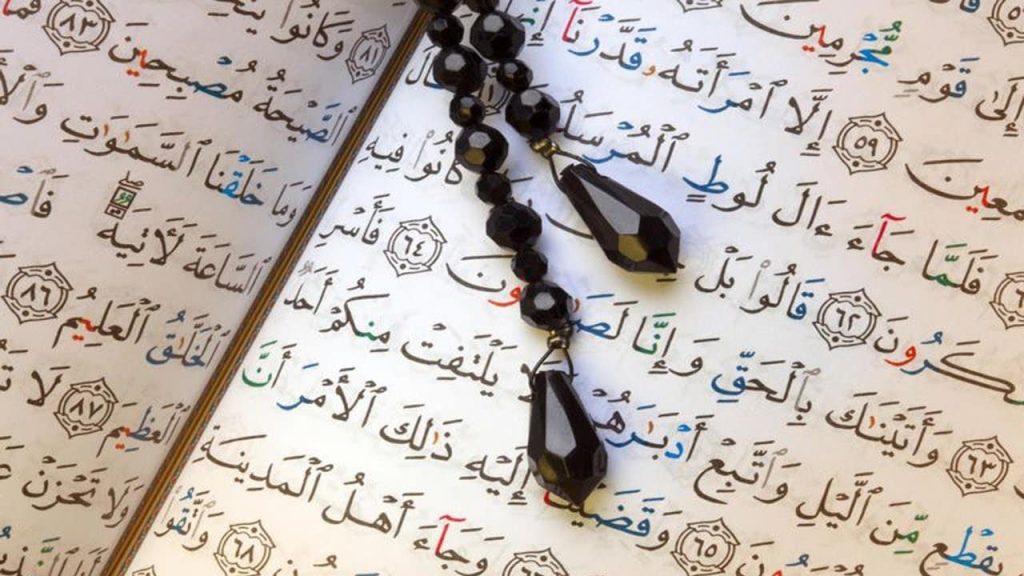 إِلَىٰ قَوْمٍ مُّجْرِمِينَ
مَعِينَ ٥٩ إِلَّا ٱمْرَأَتَهُۥ قَدَّرْنَآ
فَلَمَّا جَآءَ ءَالَ لُوطٍ ٱلْمُرْسَلُ قَالَ
كَرُونَ ٦٢ قَالُوا۟ بَلْ كَانُوا۟ فِيهِ
٦٣ وَأَتَيْنَٰكَ بِٱلْحَقِّ وَإِنَّا لَصَ ونَ ٦٤ فَأَسْرِ
بِقِطْعٍ مِّنَ ٱلَّيْلِ وَٱتَّبِعْ أَدْبَٰرَهُمْ يَلْتَفِتْ مِنكُمْ أَحَدٌ
ونَ ٦٥ وَقَضَيْنَآ إِلَيْهِ ذَٰلِكَ ٱلْأَمْرَ أَنَّ
وَجَآءَ أَهْلُ ٱلْمَدِينَةِ
٦٨ وَٱتَّقُوا۟
٨١ وَكَانُوا۟
ٱلصَّيْحَةُ مُصْبِحِينَ ٨٣ فَمَآ
وَمَا خَلَقْنَا ٱلسَّمَٰوَٰتِ وَٱلْأَ
ٱلسَّاعَةَ لَءَاتِيَةٌ فَٱصْ
ٱلْخَلَّٰقُ ٱلْعَلِيمُ ٨٦
ٱلْعَظِيمَ ٨٧ لَا تَ
وَلَا تَحْزَنْ عَ